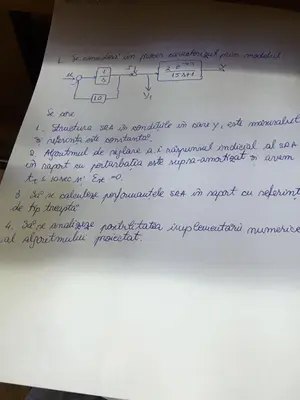 1. Se consideră un proces caracterizat prin modelul
u 1 z y
s
10
y1
15s+1
Se cere
1. Structura SRA în condițiile în care y1 este măsurabil
și referința este constantă.
2. Algoritmul de reglare a.î. răspunsul indicial al SRA
în raport cu perturbația este supra-amortizat și avem
tt ≤ 10 sec și Est = 0.
3. Să se calculeze performanțele SRA în raport cu referința
de tip treaptă
4. Să se analizeze posibilitatea implementării numerice
al algoritmului proiectat.